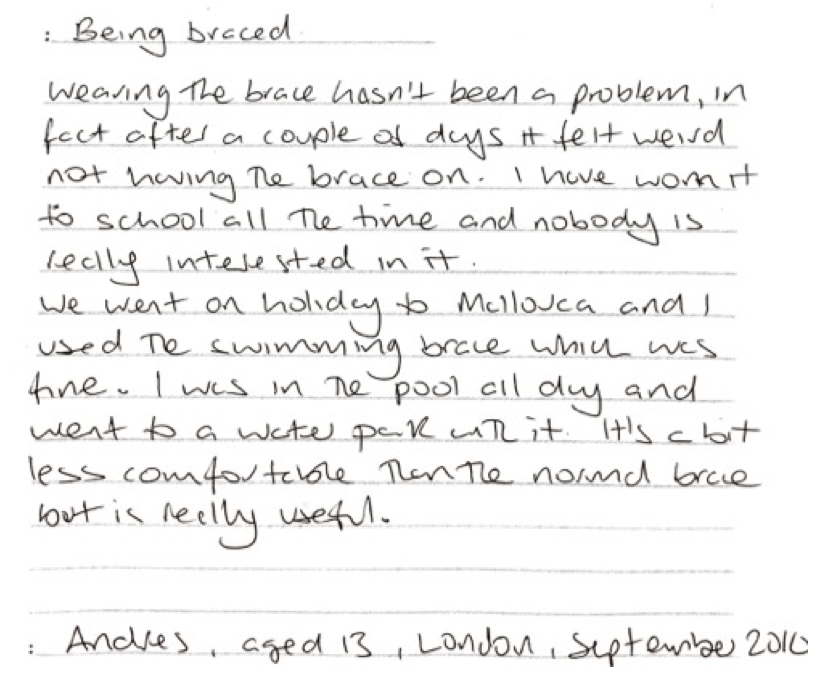 : Being braced
Wearing the brace hasn't been a problem, in
fact after a couple of days it felt weird
not having the brace on. I have worn it
to school all the time and nobody is
really interested in it.
We went on holiday to Mallorca and I
used the swimming brace which was
fine. I was in the pool all day and
went to a water park with it. It's a bit
less comfortable than the normal brace
but is really useful.
: Andres, aged 13, London, September 2010